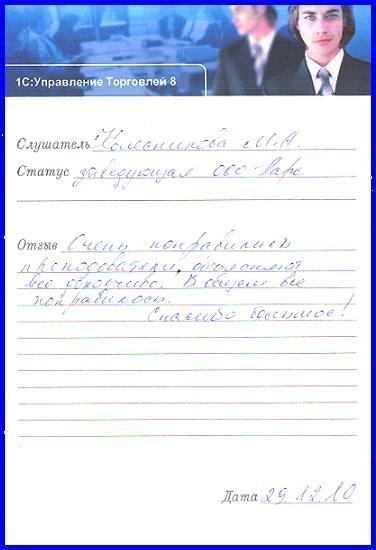 1С:Управление Торговлей 8
Слушатель Колесникова М.А.
Статус заведующая ООО Ларс
Отзыв Очень понравились
преподователи, объясняют
все доходчиво. В общем все
понравилось.
Спасибо большое!
Дата 29.12.10